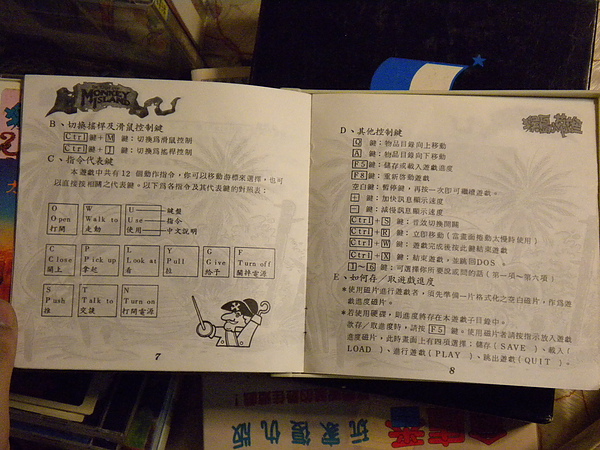 MONKEY ISLAND
B、切換搖桿及滑鼠控制鍵
Ctrl 鍵+ M 鍵:切換為滑鼠控制
Ctrl 鍵+ J 鍵:切換為搖桿控制
C、指令代表鍵
本遊戲中共有12 個動作指令,你可以移動游標來選擇,也可
以直接按相關之代表鍵。以下為各指令及其代表鍵的對照表:
O
Open
打開
W
Walk to
走動
U 鍵盤
Use 指令
使用 中文說明
C
Close
關上
P
Pick up
拿起
L
Look at
看
Y
Pull
拉
G
Give
給予
F
Turn off
關掉電源
S
Push
推
T
Talk to
交談
N
Turn on
打開電源
7
D、其他控制鍵
Q 鍵:物品目錄向上移動
A 鍵:物品目錄向下移動
F5 鍵:儲存或載入遊戲進度
F8 鍵:重新啓動遊戲
空白鍵:暫停鍵,再按一次即可繼續遊戲。
+ 鍵:加快訊息顯示速度
- 鍵:減慢訊息顯示速度
Ctrl + S 鍵:音效切換開關
Ctrl + R 鍵:立即移動(當畫面捲動太慢時使用)
Ctrl + W 鍵:遊戲完成後按此鍵結束遊戲
Ctrl + X 鍵:結束遊戲,並跳回DOS 。
1 ~ 6 鍵:可選擇你所要說或問的話(第一項~第六項)
E、如何存/取遊戲進度
*使用磁片進行遊戲者,須先準備一片格式化之空白磁片,作為遊
戲進度磁片。
*若使用硬碟,則進度將存在本遊戲子目錄中。
欲存/取進度時,請按 F5 鍵。使用磁片者請按指示放入遊戲
進度磁片,此時畫面上有四項選擇:儲存(SAVE)、載入(
LOAD )、進行遊戲(PLAY )、跳出遊戲(QUIT )、
8
玩家復仇版